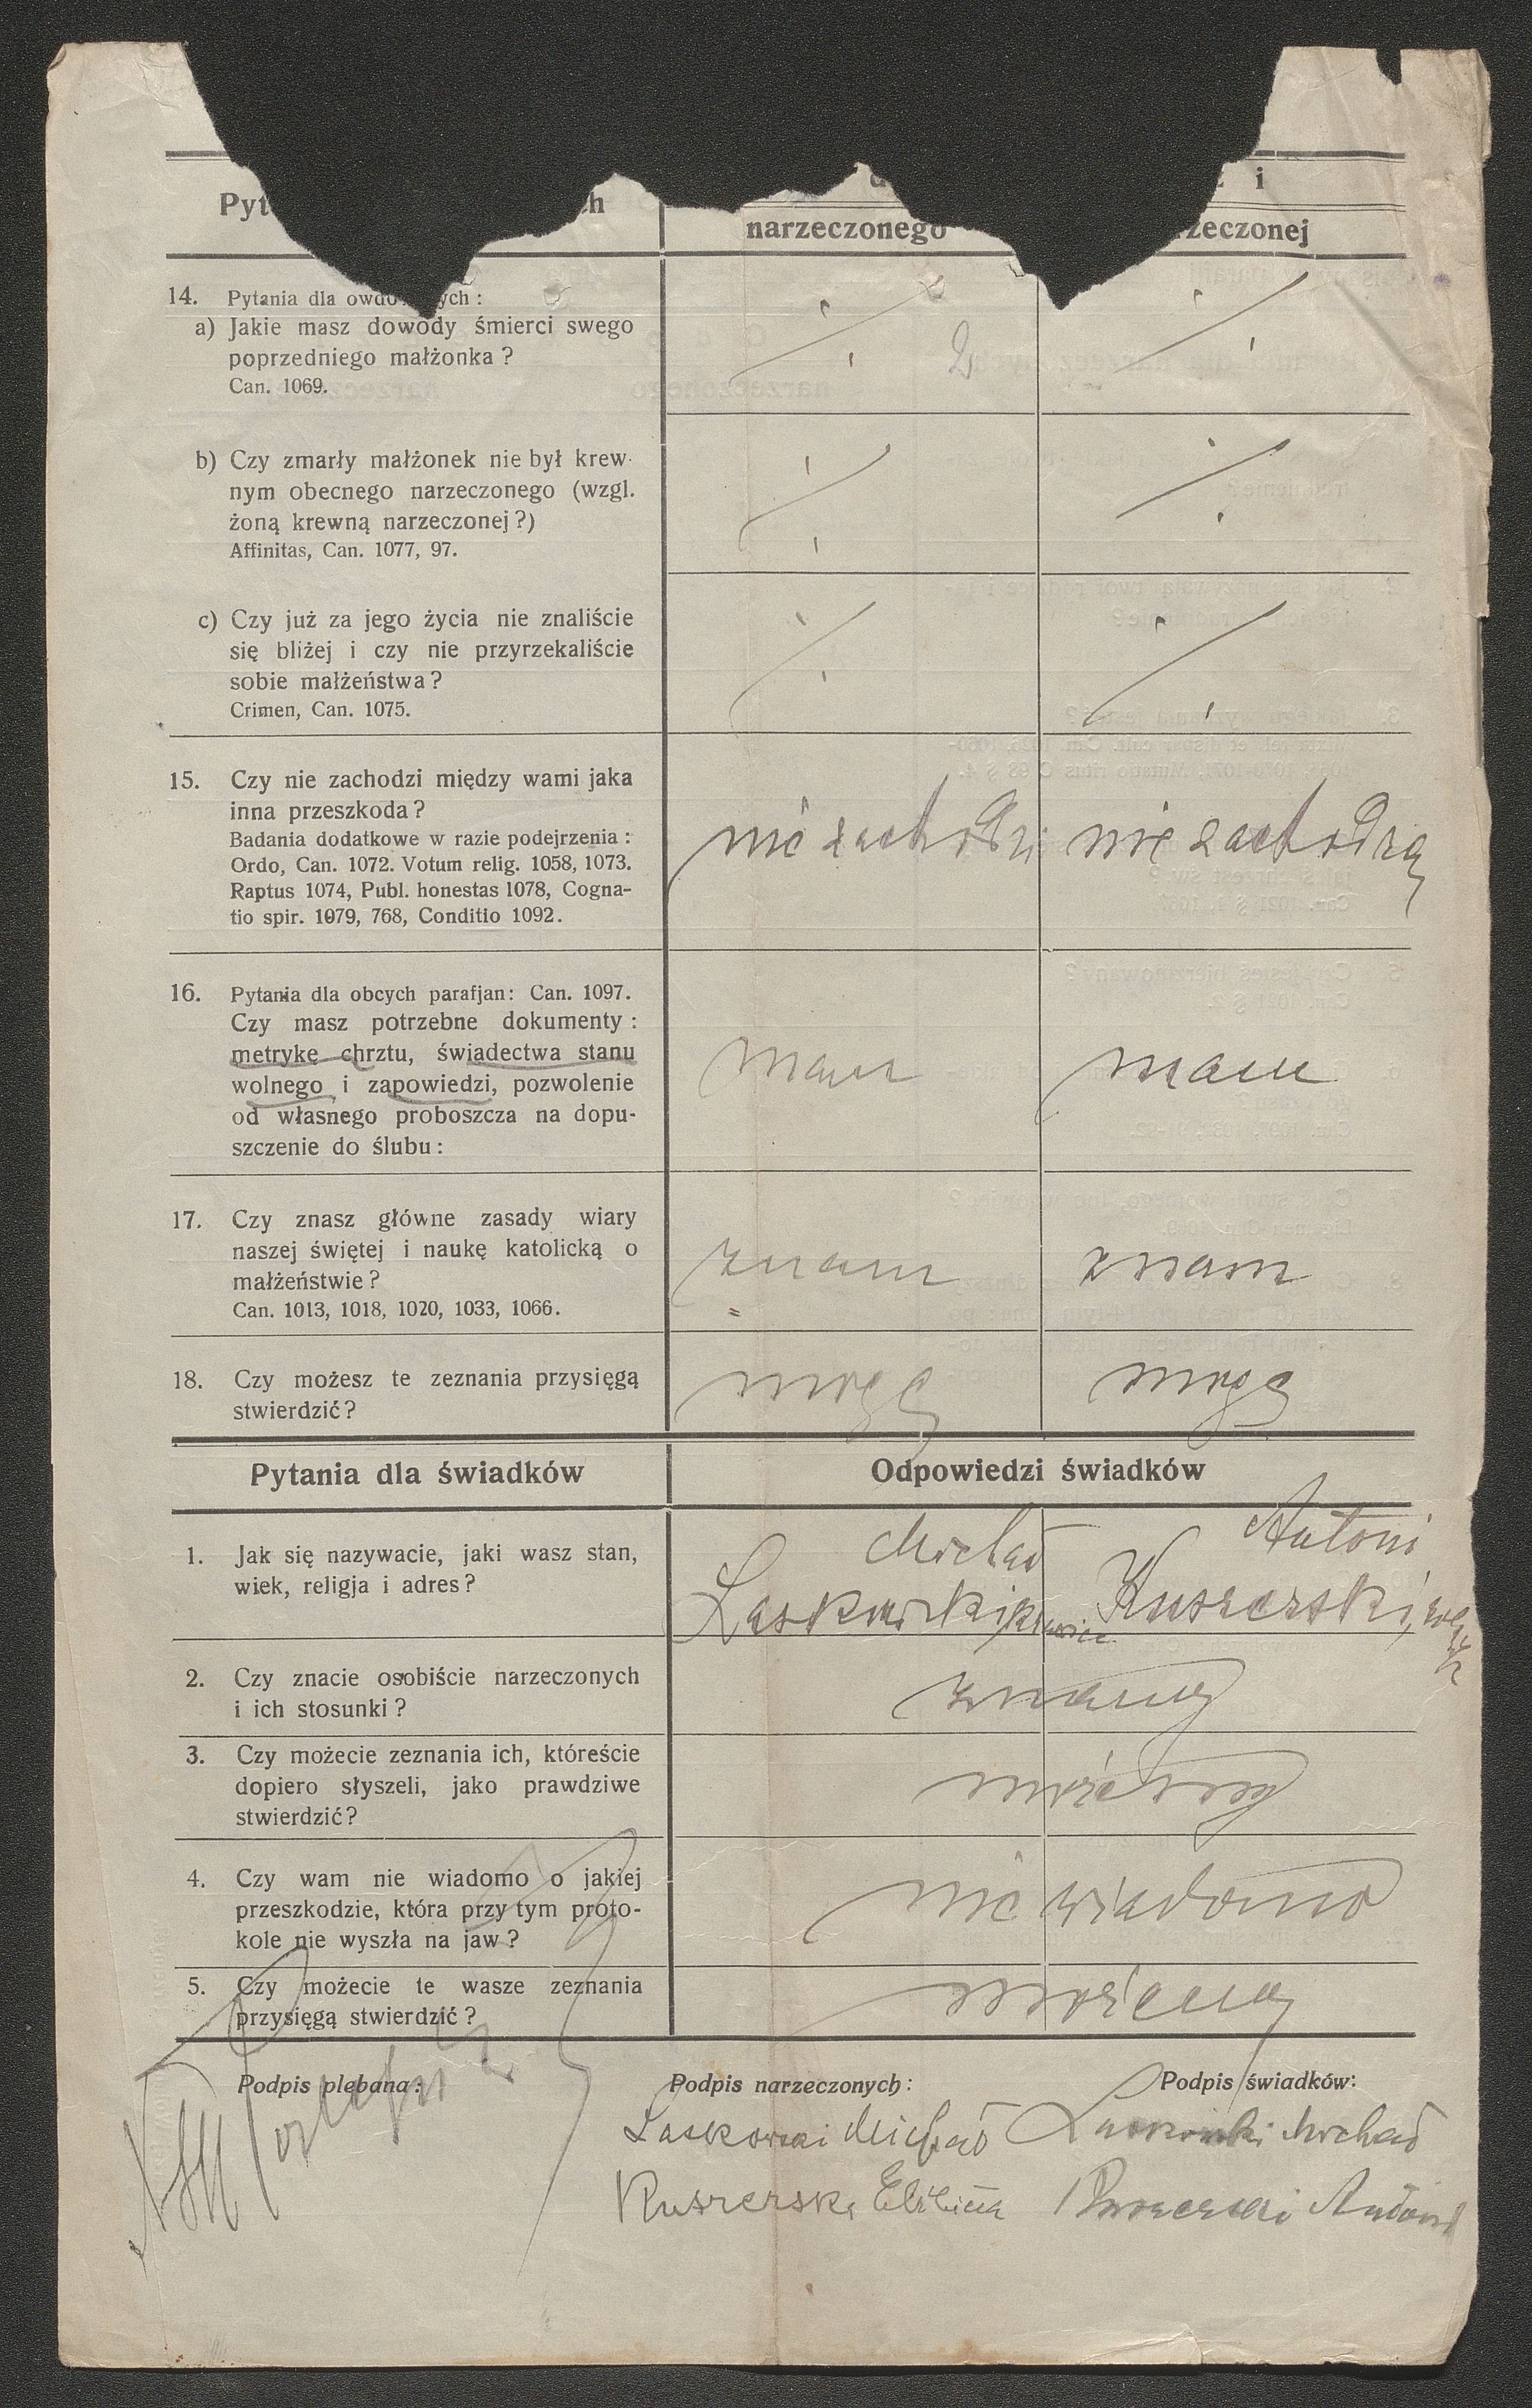 narzeczonego
14. Pytania dla
a) Jakie masz dowody śmierci swego
poprzedniego małżonka?
Can. 1069.
b) Czy zmarły małżonek nie był krew-
nym obecnego narzeczonego (wzgl.
żoną krewną narzeczonej?)
Affinitas, Can. 1077, 97.
c) Czy już za jego życia nie znaliście
się bliżej i czy nie przyrzekaliście
sobie małżeństwa?
Crimen, Can. 1075.
15. Czy nie zachodzi między wami jaka
inna przeszkoda?
Badania dodatkowe w razie podejrzenia:
Ordo, Can. 1072. Votum relig. 1058, 1073.
Raptus 1074, Publ. honestas 1078, Cogna-
tio spir. 1079, 768, Conditio 1092.
nie zachodzi
nie zachodzą
16. Pytania dla obcych parafjan: Can. 1097.
Czy masz potrzebne dokumenty:
metrykę chrztu, świadectwa stanu
wolnego i zapowiedzi, pozwolenie
od własnego proboszcza na dopu-
szczenie do ślubu:
mam
mam
17. Czy znasz główne zasady wiary
naszej świętej i naukę katolicką o
małżeństwie?
Can. 1013, 1018, 1020, 1033, 1066.
znam
znam
18. Czy możesz te zeznania przysięgą
stwierdzić?
mogę
mogę
Pytania dla świadków
Odpowiedzi świadków
1. Jak się nazywacie, jaki wasz stan,
wiek, religja i adres?
Michał
Laskowski
Antoni
Kuszerski
2. Czy znacie osobiście narzeczonych
i ich stosunki?
znamy
3. Czy możecie zeznania ich, któreście
dopiero słyszeli, jako prawdziwe
stwierdzić?
możemy
4. Czy wam nie wiadomo o jakiej
przeszkodzie, która przy tym proto-
kole nie wyszła na jaw?
nie wiadomo
5. Czy możecie te wasze zeznania
przysięgą stwierdzić?
możemy
Podpis plebana:
Podpis narzeczonych:
Podpis świadków:
Laskowski Michał
Laskowski Michał
Kuszerska Elżbieta
Antoni